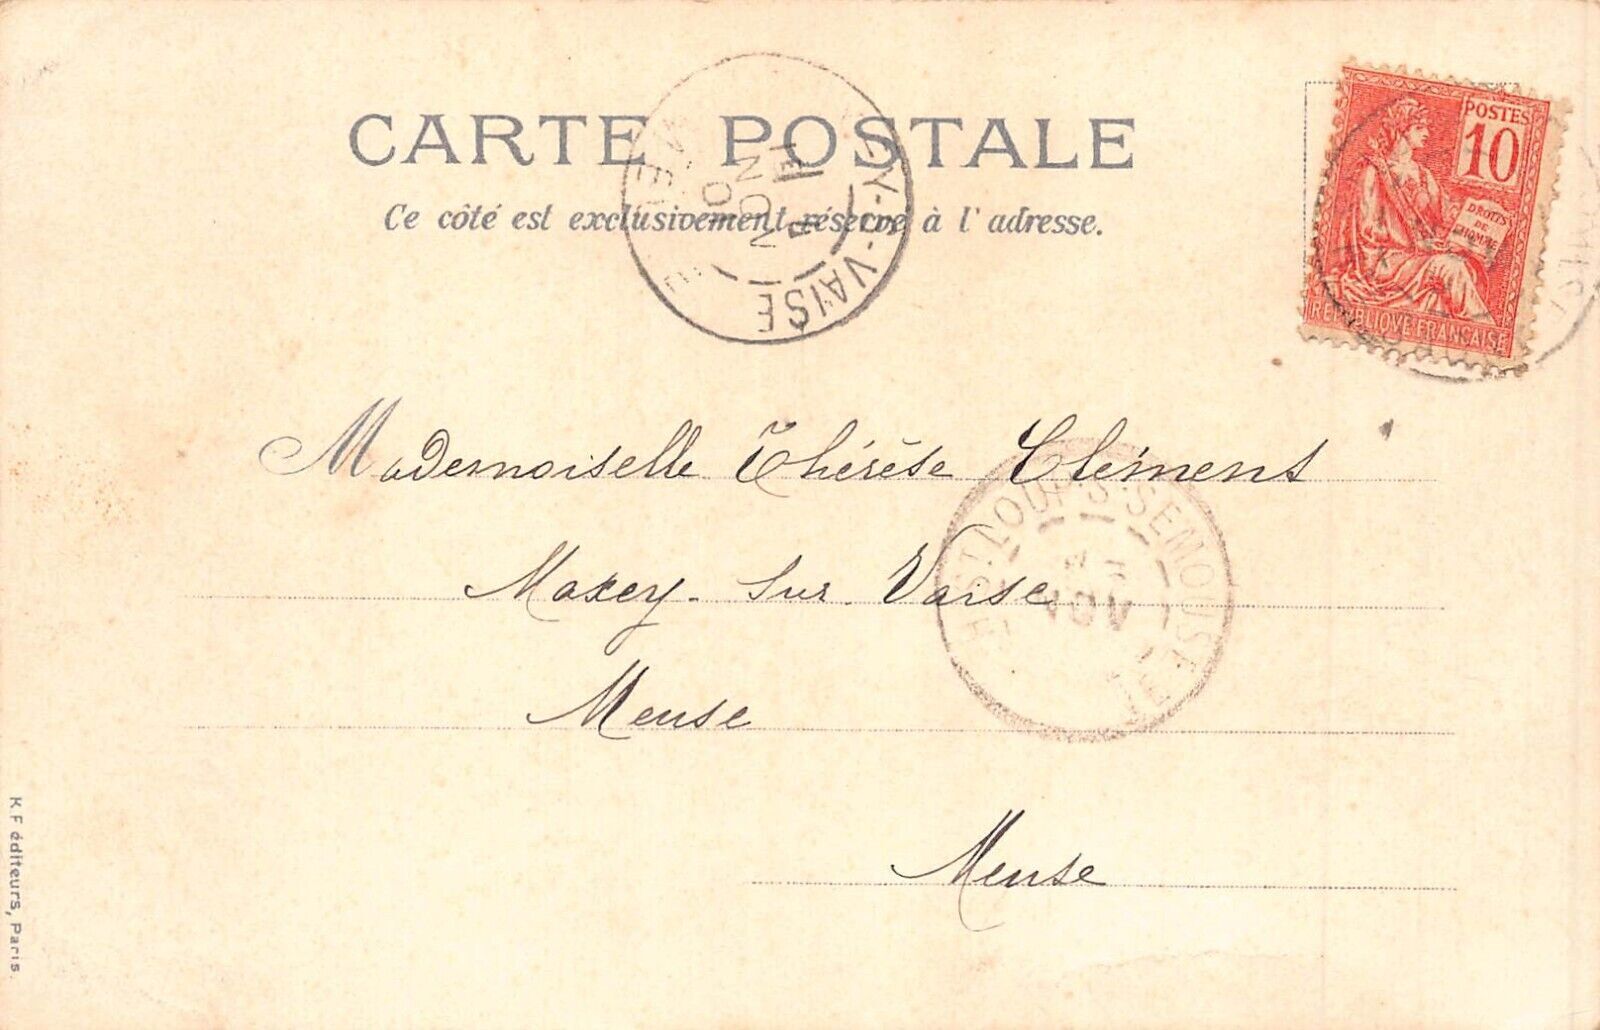 CARTE POSTALE
Ce côté est exclusivement réservé à l'adresse.
POSTES
10
DROITS
DE
L'HOMME
REPUBLIQUE FRANÇAISE
EY-S-VAISE
NOV
Mademoiselle Thérèse Clément
Maxey-sur-Vaise
Meuse
Meuse
LOUP-S-SEMOUSE
NOV
K.F éditeurs, Paris.